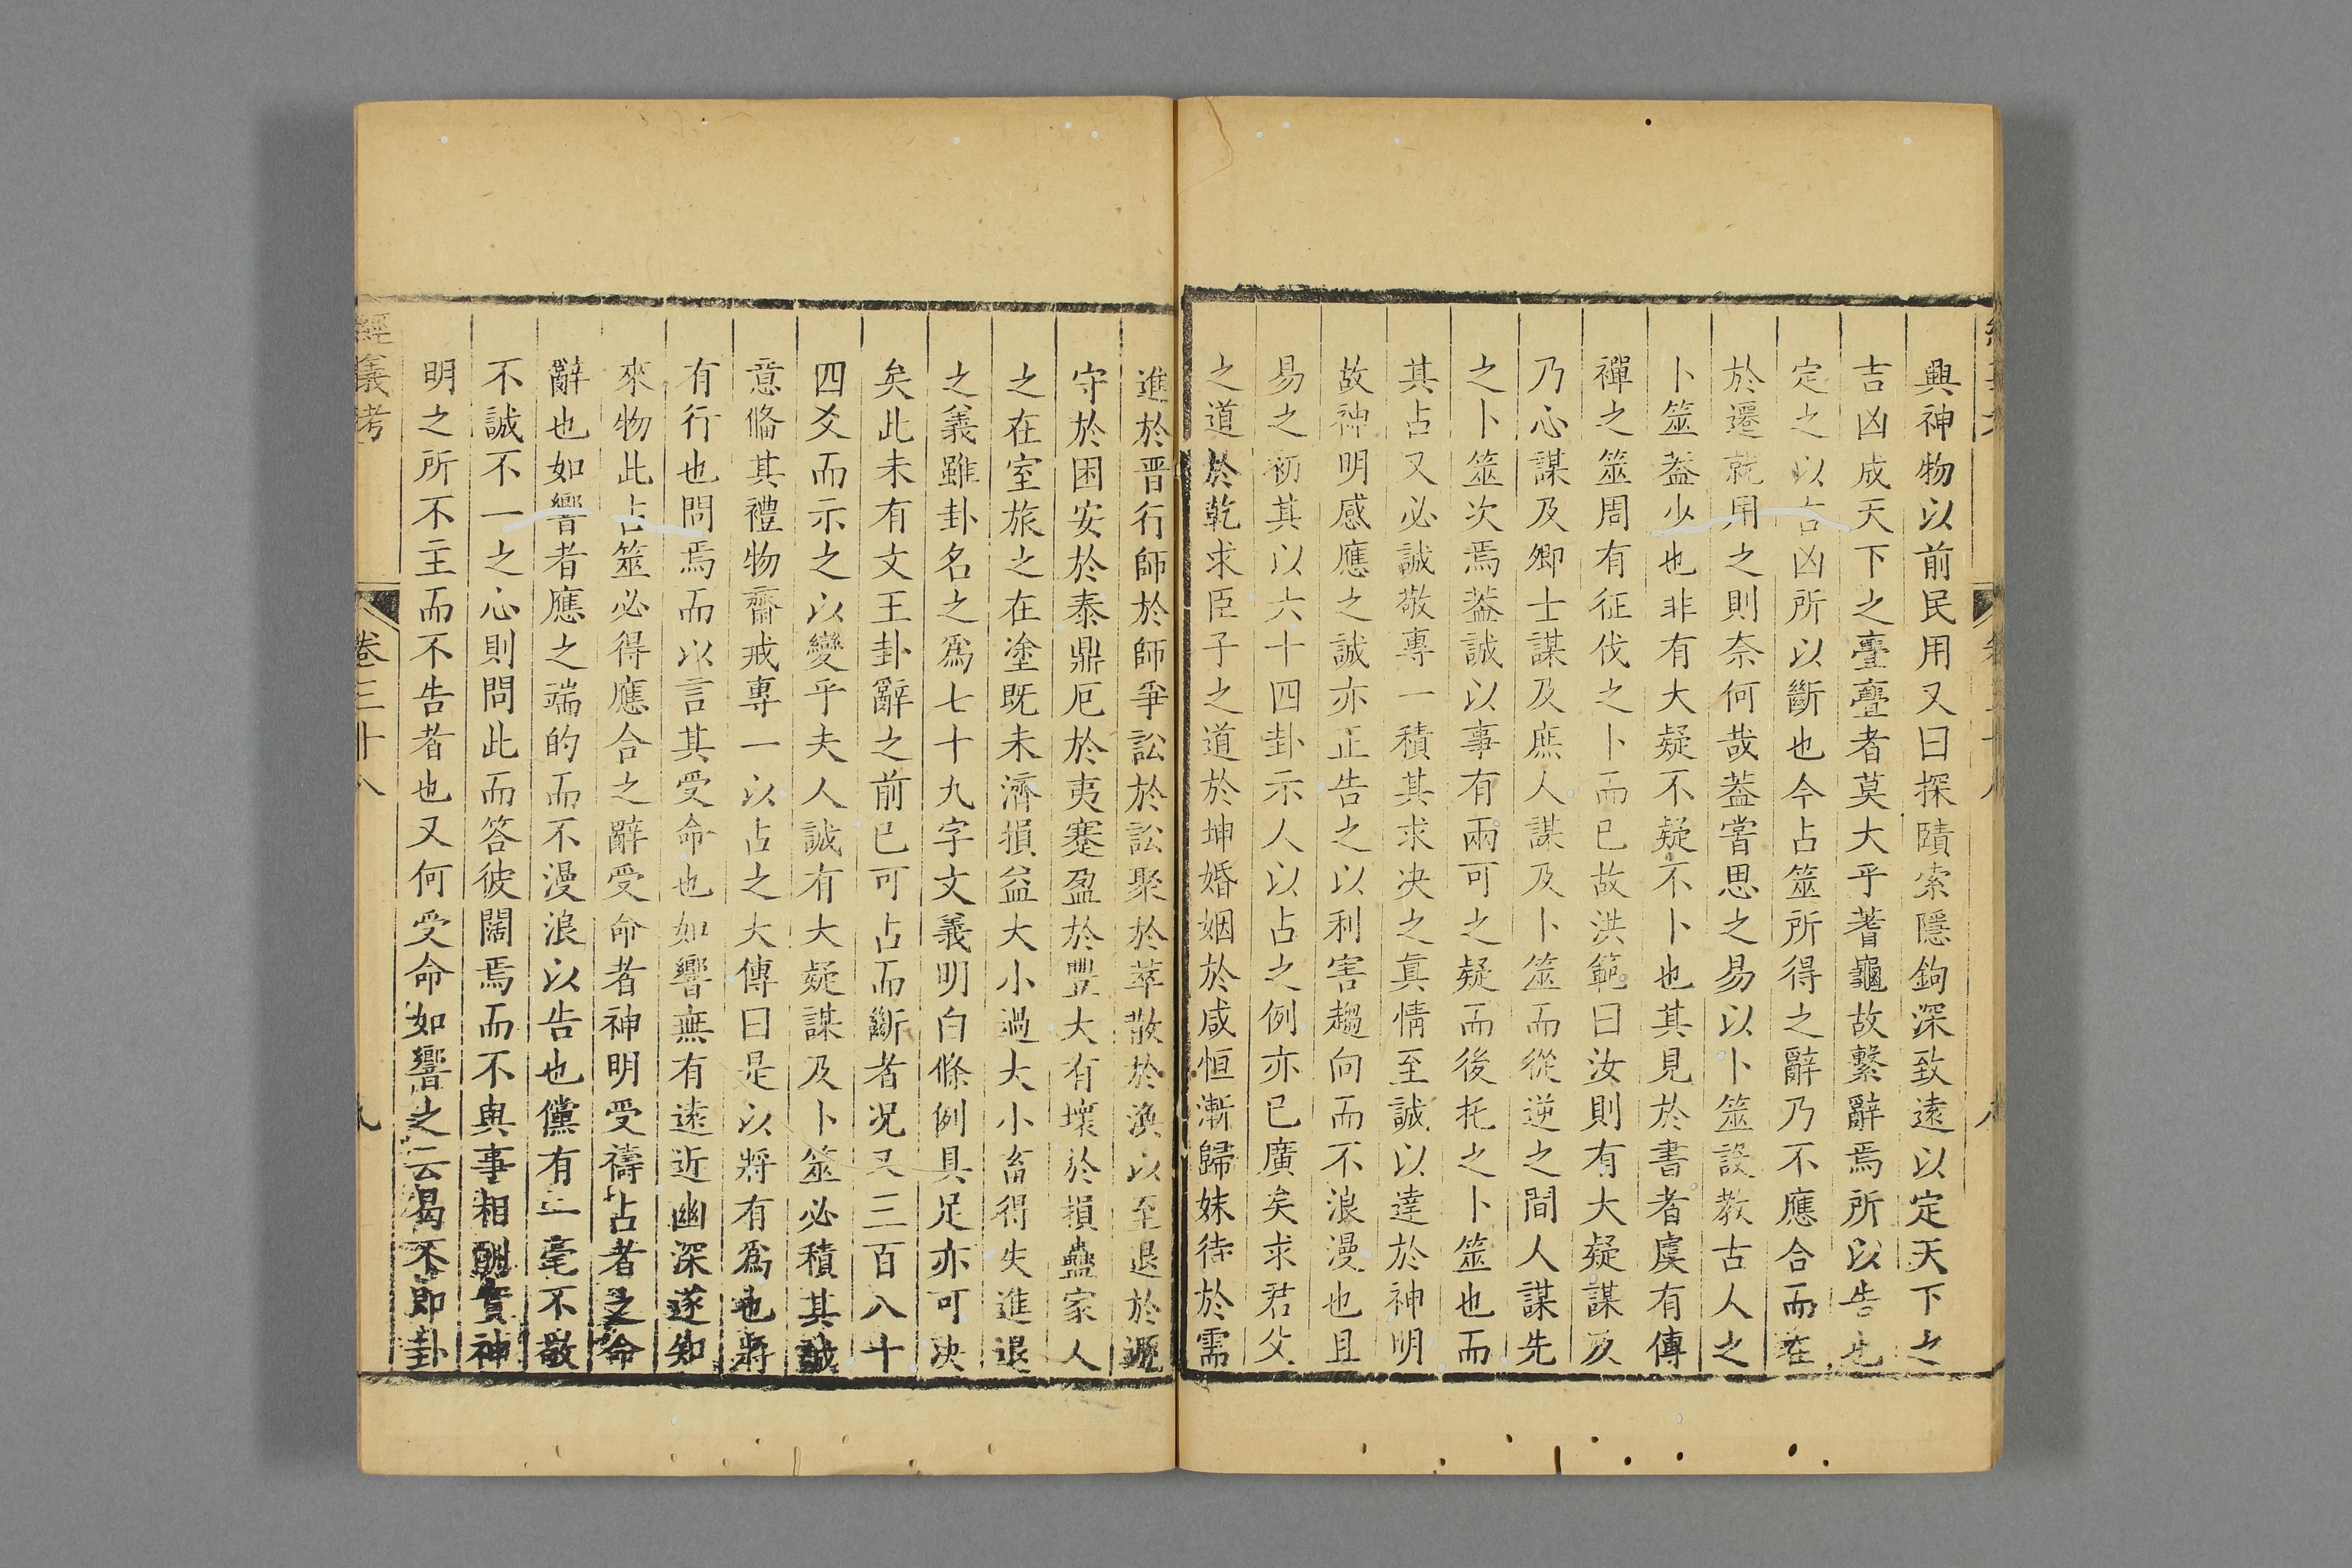 興神物以前民用又曰探賾索隱鉤深致遠以定天下之
吉凶成天下之亹亹者莫大乎蓍龜故繫辭焉所以告也
定之以吉凶所以斷也今占筮所得之辭乃不應合而在
於遷就用之則奈何哉葢嘗思之易以卜筮設教古人之
卜筮葢少也非有大疑不疑不卜也其見於書者虞有傳
禪之筮周有征伐之卜而已故洪範曰汝則有大疑謀及
乃心謀及卿士謀及庶人謀及卜筮而從逆之間人謀先
之卜筮次焉葢誠以事有兩可之疑而後托之卜筮也而
其占又必誠敬專一積其求决之真情至誠以達於神明
故神明感應之誠亦正告之以利害趨向而不浪漫也且
易之初其以六十四卦示人以占之例亦已廣矣求君父
之道於乾求臣子之道於坤婚姻於咸恒漸歸妹待於需
進於晋行師於師爭訟於訟聚於萃散於渙以至退於遯
守於困安於泰鼎厄於夷蹇盈於豐大有壞於損蠱家人
之在室旅之在塗既未濟損益大小過大小畜得失進退
之義雖卦名之爲七十九字文義明白條例具足亦可决
矣此未有文王卦辭之前已可占而斷者况又三百八十
四爻而示之以變乎夫人誠有大疑謀及卜筮必積其誠
意俻其禮物齋戒專一以占之大傳曰是以將有爲也將
有行也問焉而以言其受命也如響無有遠近幽深遂知
來物此占筮必得應合之辭受命者神明受禱占者之命
辭也如響者應之端的而不漫浪以告也儻有一毫不敬
不誠不一之心則問此而答彼闊焉而不與事相酬實神
明之所不主而不告者也又何受命如響之云曷不即卦
經義考
卷三十八
九